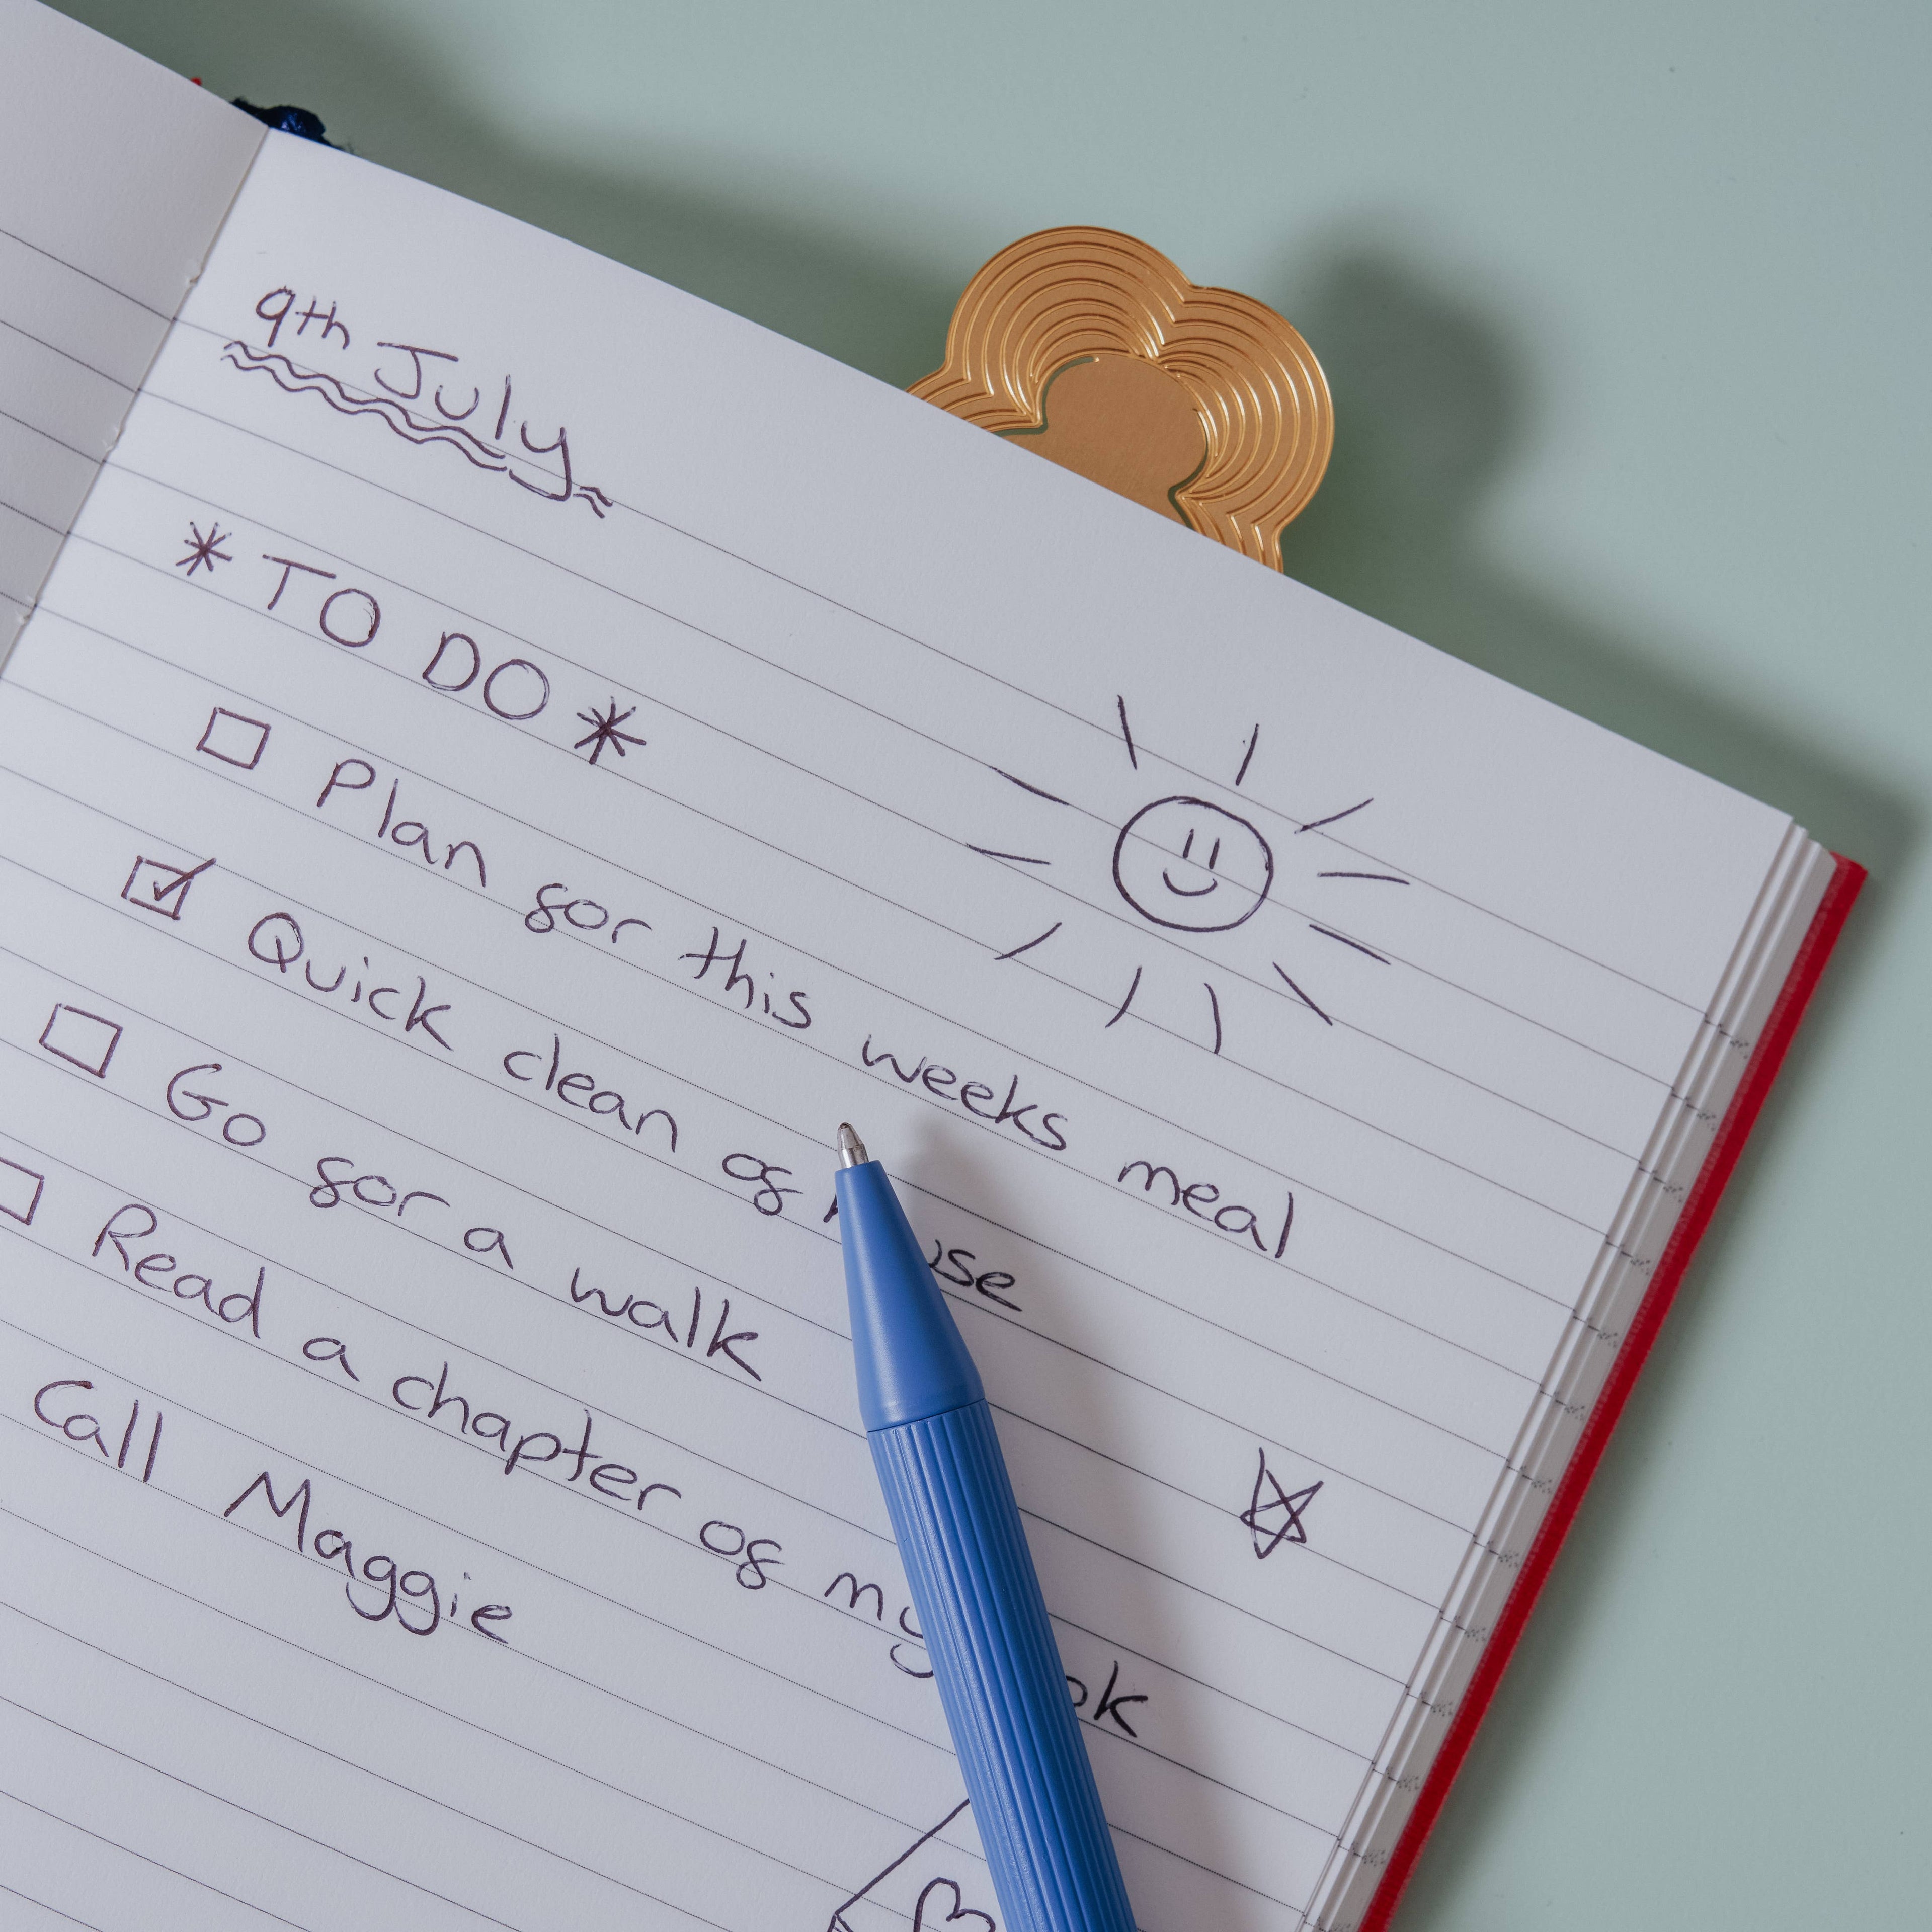 9th July
* TO DO *
Plan for this weeks meal
Quick clean of house
Go for a walk
Read a chapter of my book
Call Maggie